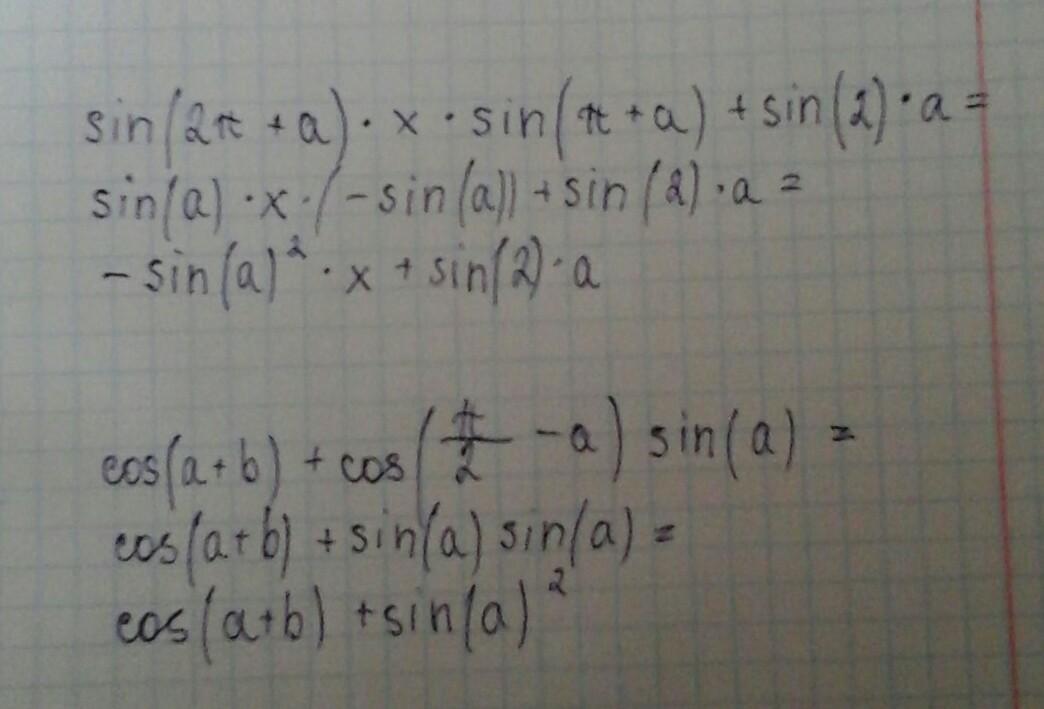 sin(2π + a) · x · sin(π + a) + sin(2) · a =
sin(a) · x · (-sin(a)) + sin(2) · a =
- sin(a)² · x + sin(2) · a
cos(a+b) + cos(π/2 - a) sin(a) =
cos(a+b) + sin(a) sin(a) =
cos(a+b) + sin(a)²